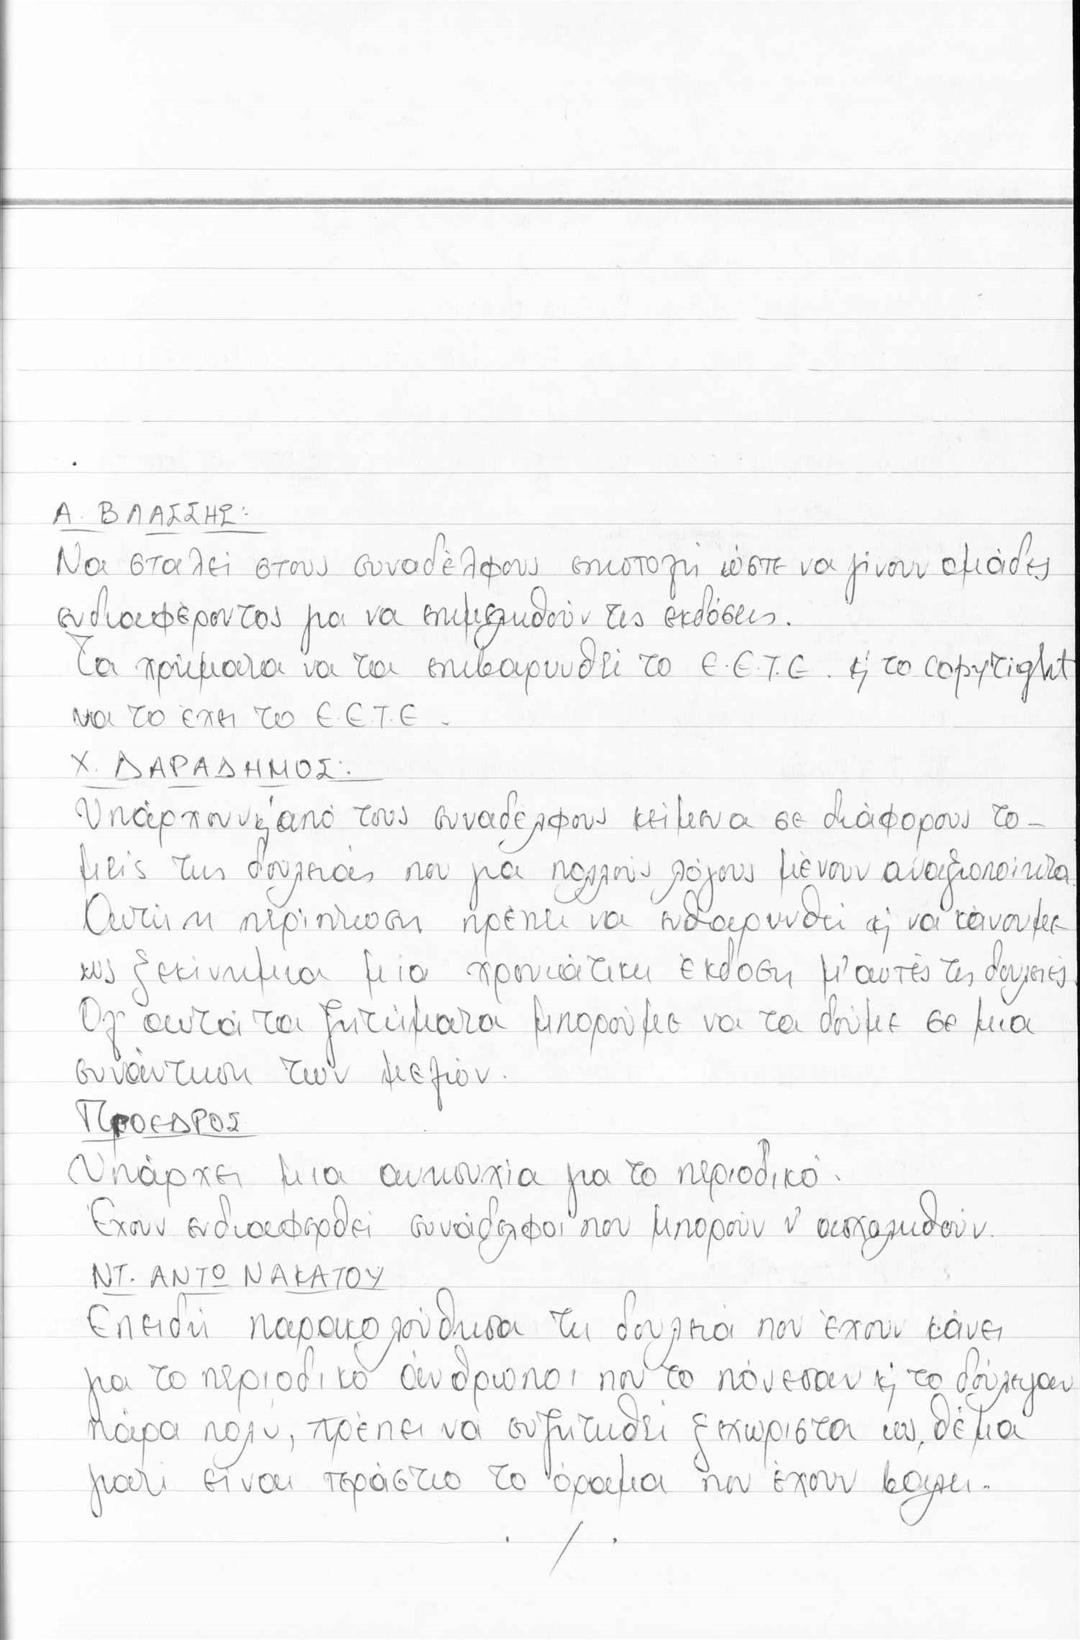 Α. ΒΛΑΣΣΗΣ:
Να σταλεί στους συναδέλφους επιστολή ώστε να γίνουν ομάδες
ενδιαφέροντος για να επιμεληθούν τις εκδόσεις.
Τα χρήματα να τα επιβαρυνθεί το Ε.Ε.Τ.Ε. κ' το copyright
να το έχει το Ε.Ε.Τ.Ε.
Χ. ΔΑΡΑΔΗΜΟΣ:
Υπάρχουν κ' από τους συναδέλφους κείμενα σε διάφορους το-
μείς της δουλειάς που για πολλούς λόγους μένουν αναξιοποίητα.
Αυτή η περίπτωση πρέπει να ενθαρρυνθεί κ' να κάνουμε
ως ξεκίνημα μία χρονιάτικη έκδοση μ' αυτές τις δουλειές.
Ολ' αυτά τα ζητήματα μπορούμε να τα δούμε σε μια
συνάντηση των μελών.
ΠΡΟΕΔΡΟΣ
Υπάρχει μια ανησυχία για το περιοδικό.
Έχουν ενδιαφερθεί συνάδελφοι που μπορούν ν' ασχοληθούν.
ΝΤ. ΑΝΤΩΝΑΚΑΤΟΥ
Επειδή παρακολούθησα τη δουλειά που έχουν κάνει
για το περιοδικό άνθρωποι που το πόνεσαν κ' το δούλεψαν
πάρα πολύ, πρέπει να συζητηθεί ξεχωριστά ως θέμα
γιατί είναι τεράστιο το όραμα που έχουν βάλει.
./.